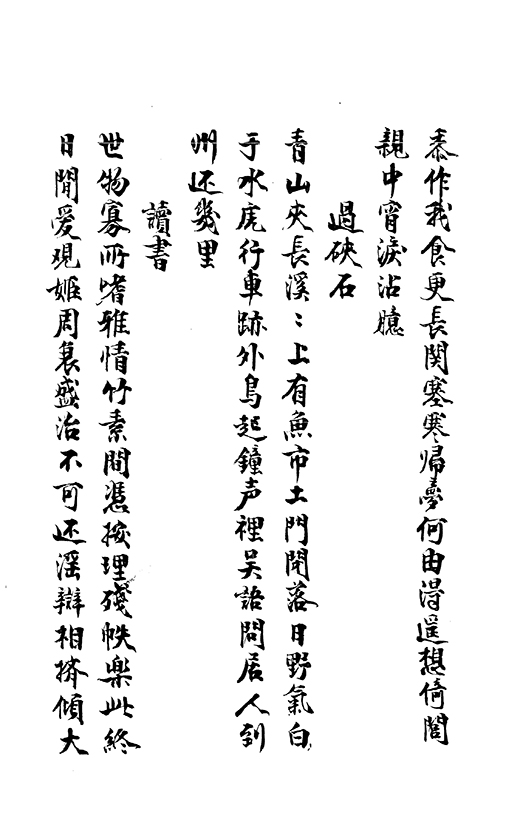 黍作我食更長関塞寒帰夢何由得遥想倚閭
親中宵淚沾臆
過硤石
青山夾長溪〻上有魚市土門開落日野氣白
于水虎行車跡外烏起鐘声裡吳語問居人到
州还幾里
讀書
世物寡所嗜雅情竹素間凭按理殘帙樂此終
日閒爰观姬周衰盛治不可还滛辯相擠傾大